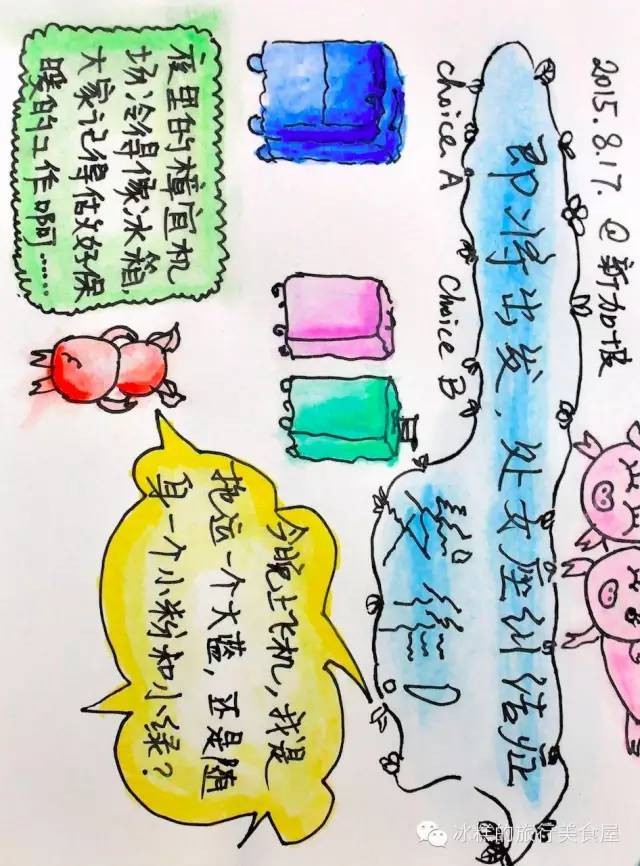 2015.8.17. @新加坡
即将出发,处女座纠结症
choice A
choice B
夜里的樟宜机
场冷得像冰箱
大家记得做好保
暖的工作啊……
今晚上飞机,我是
拖运一个大蓝,还是随
身一个小粉和小绿?
冰糕的旅行美食屋